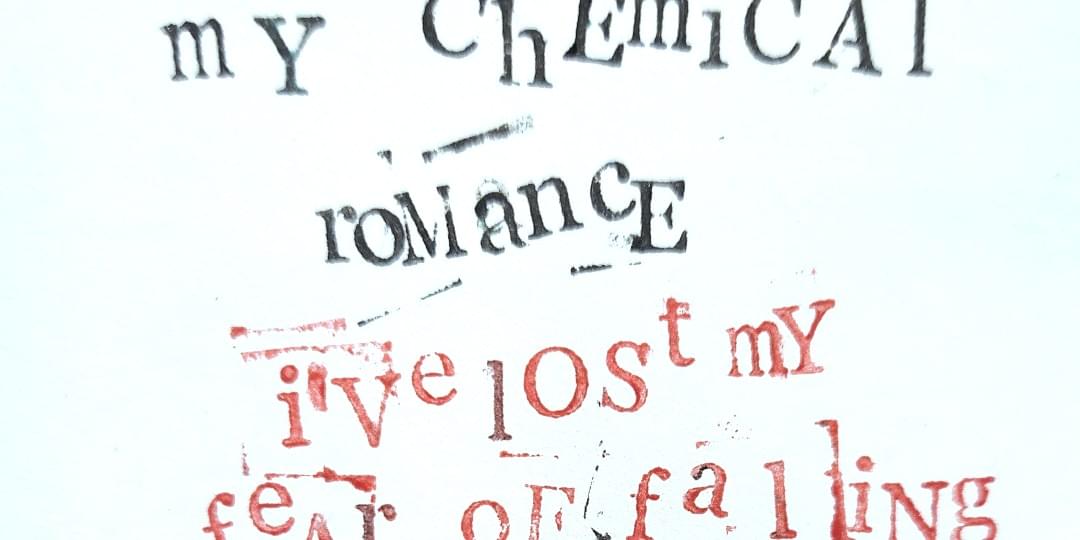 mY ChEmiCAl
roMancE
i'Ve lOSt mY
feAr oF falliNg